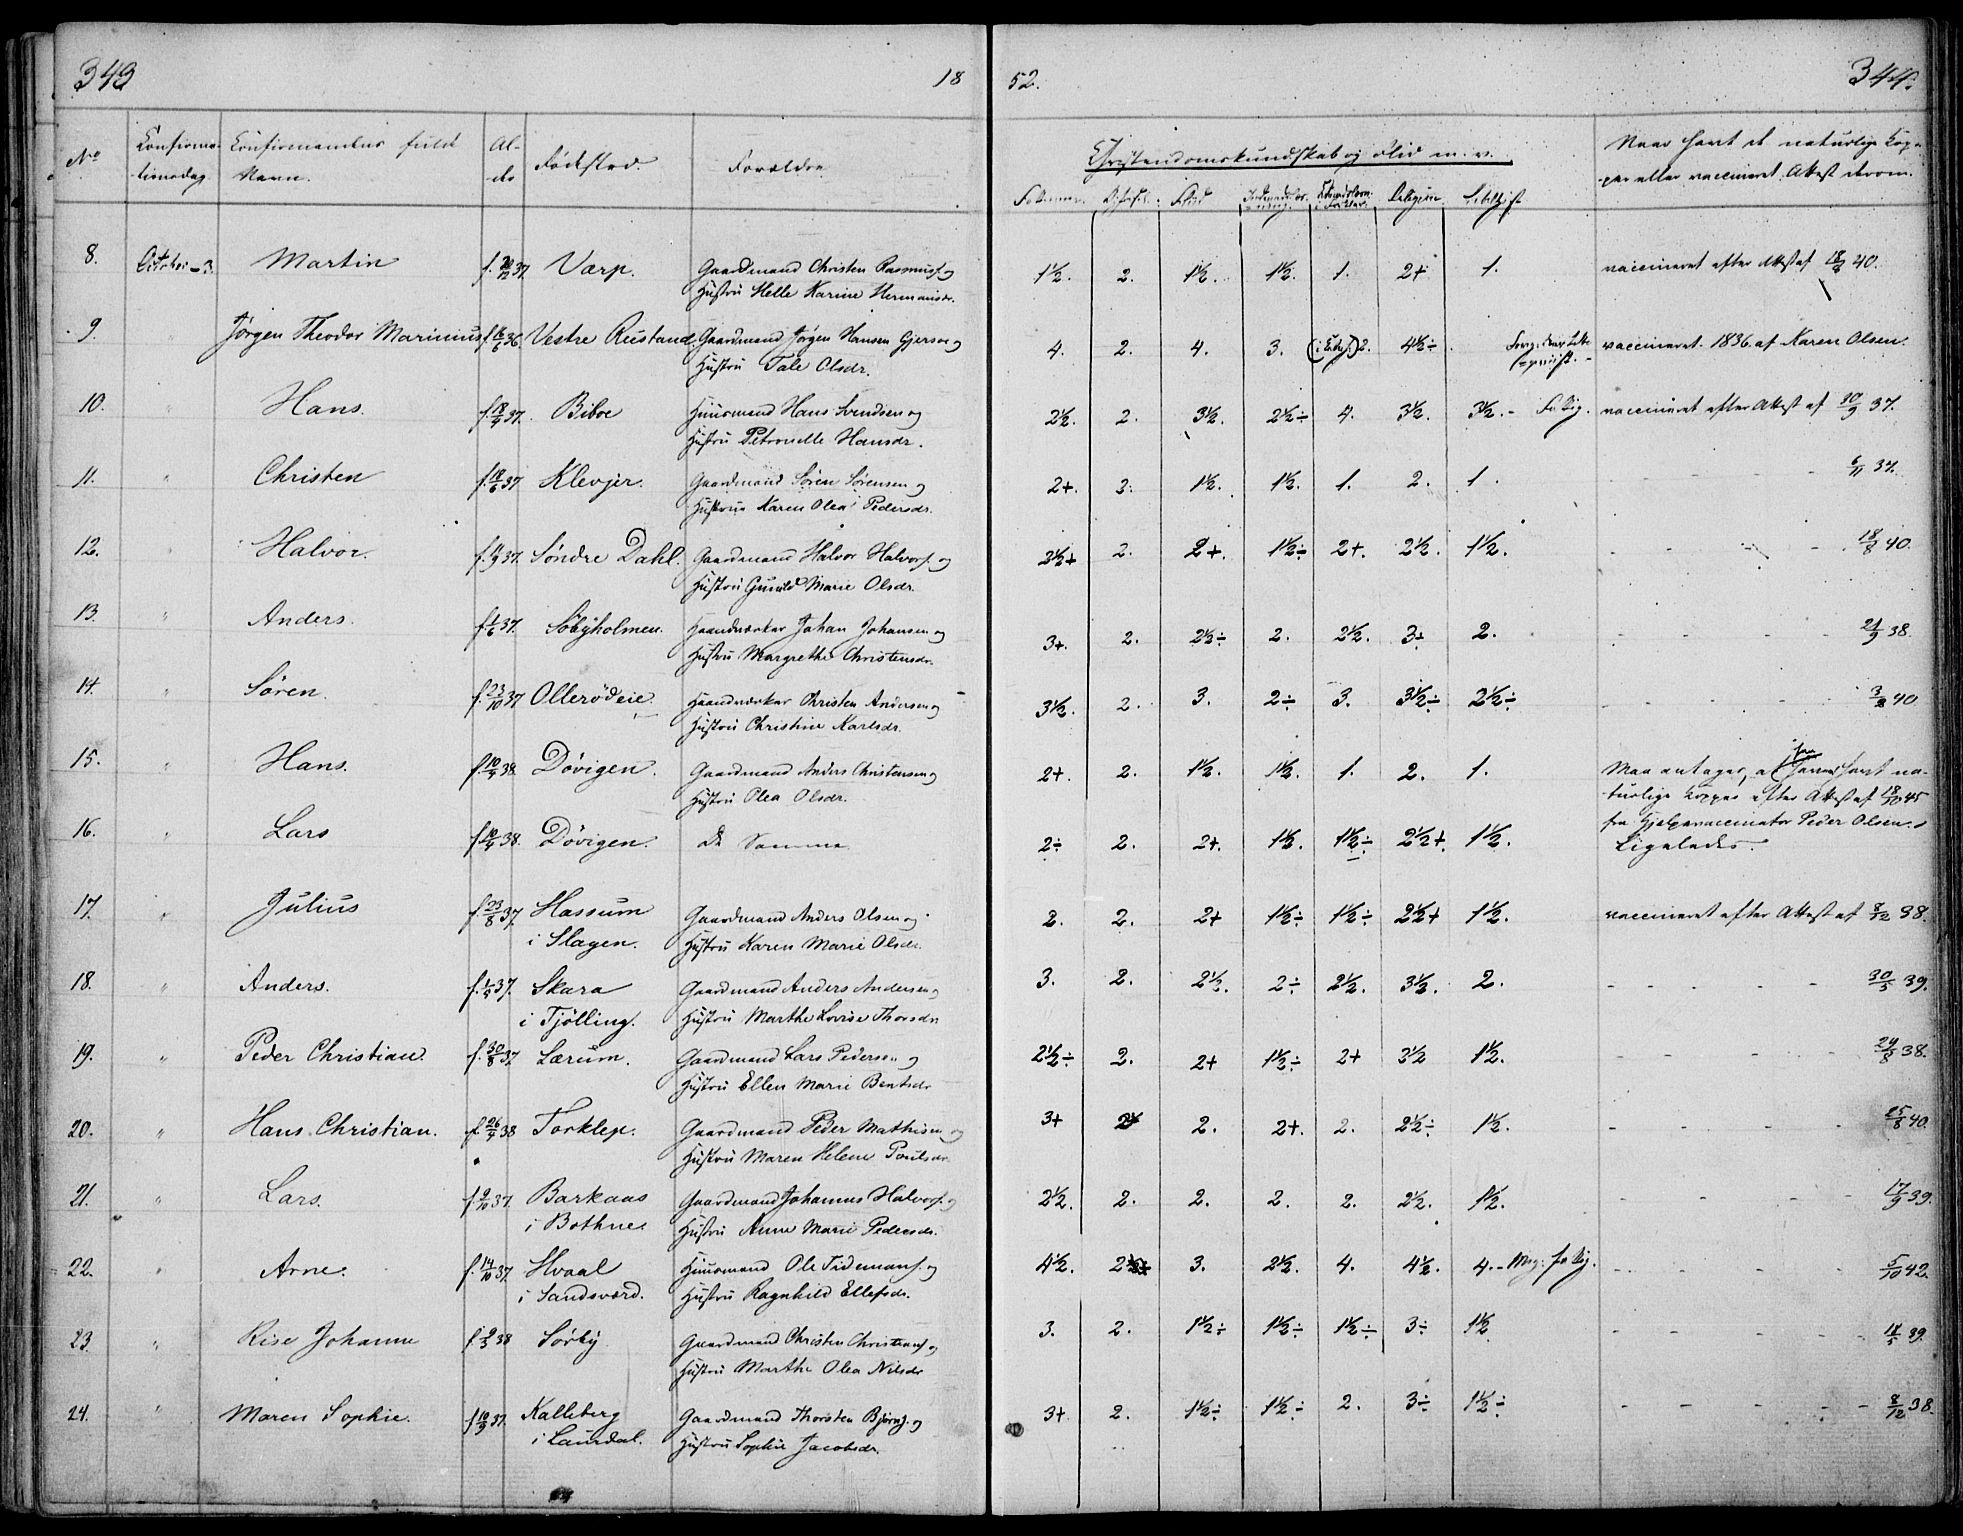 343 18 52. 344.
No Confirma- Confirmandens fuld Al- Fødested. Forældre. Christendomskundskab og Flid m. v. Naar havt de naturlige Kop-
tionsdag Navn. der per eller vaccineret. Attest derom.
Flid Religion
8. October 3. Martin f. 37. Varp. Gaardmand Christen Rasmuss. og 1½. 2. 1½. 1½. 1. 2+ 1. vaccineret efter Attest af 18/8 40.
Hustru Helle Karine Hermansdr.
9. " Jørgen Theodor Marinius f. 16/6 36. Vestre Rustand. Gaardmand Jørgen Hansen Gjersøe og 4. 2. 4. 3. 2. 4½÷ vaccineret 1836 af Karen Olsen.
Hustru Tale Olsdr.
10. " Hans. f. 18/9 37. Biboe Huusmand Hans Svendsen og 2½. 2. 3½. 2½÷ 4. 3½. 3½. - vaccineret efter Attest af 30/9 37.
Hustru Petronelle Hansdr.
11. " Christen f. 18/6 37 Klevjer. Gaardmand Søren Sørensen og 2+. 2. 1½. 1½. 1. 2. 1. - - - - 6/11 37.
Hustru Karen Olea Pedersdr.
12. " Halvor. f. 37. Søndre Dahl. Gaardmand Halvor Halvors. og 2½+ 2. 2+. 1½÷ 2+. 2½. 1½. - - - - 18/8 40.
Hustru Gunild Marie Olsdr.
13. " Anders. f. 1/6 37. Søbyholmen. Haandværker Johan Johansen og 3+. 2. 2½÷ 2. 2½. 3÷ 2. - - - - 21/9 38.
Hustru Margrethe Christensdr.
14. " Søren. f. 23/10 37 Ollerødeie. Haandværker Christen Andersen og 3½. 2. 3. 2÷ 3. 3½÷ 2½÷ - - - - 40
Hustru Christine Karlsdr.
15. " Hans. f. 10/4 38. Døvigen. Gaardmand Anders Christensen og 2+. 2. 1½. 1½. 1. 2. 1. Maa antages, at have havt na-
Hustru Olea Olsdr. turlige Kopper efter Attest af 18/10 45
fra Hjelpevaccinatør Peder Olsen.
16. " Lars f. 10/4 38. Døvigen. De Samme 2÷ 2. 2+. 1½. 1½÷ 2½+. 1½. Ligeledes.
17. " Julius f. 23/8 37. Hassum Gaardmand Anders Olsen og 2. 2. 2+ 1½÷ 1½÷ 2½+ 1½. vaccineret efter Attest af 8/12 38.
i Slagen. Hustru Karen Marie Olsdr.
18. " Anders. f. 37. Skara Gaardmand Anders Andersen og 3. 2. 2½. 2÷ 2½. 3½. 2. - - - - 30/5 39.
i Tjølling. Hustru Marthe Lovise Thorsdr.
19. " Peder Christian. f. 30/8 37 Lærum. Gaardmand Lars Pedersen og 2½÷ 2. 2+ 1½÷ 2+ 2½ 1½. - - - - 24/8 38.
Hustru Ellen Marie Bentsdr
20. " Hans Christian. f. 26/4 38 Torklep. Gaardmand Peder Mathisen og 3+ 2 2. 2+. 2. 2½÷ 1½. - - - - 25/8 40.
Hustru Maren Helene Poulsdr.
21. " Lars. f. 9/10 37. Barkaas Gaardmand Johannes Halvors. og 2½. 2. 2. 2. 2. 2½. 1½. - - - - 17/9 39.
i Bothne. Hustru Anne Marie Pedersdr.
22. " Arne. f. 14/10 37. Hvaal Huusmand Ole Tidemans. og 4½. 2 3. 2½. 4. 4½. 4. - - - - - 5/10 42.
i Sandsværd. Hustru Ragnhild Ellefsdr.
23. " Rise Johanne f. 38 Sørby Gaardmand Christen Christians. og 3. 2. 1½÷ 1½÷ 1½÷ 3÷ 1½ - - - - 18/5 39.
Hustru Marthe Olea Nilsdr
24. " Maren Sophie. f. 37. Kalleberg Gaardmand Thorsten Bjørns. og 3+ 2. 1½÷ 1½÷ 2. 3÷ 1½÷ - - - - 8/12 38.
i Laurdal. Hustru Sophie Jacobsdr.